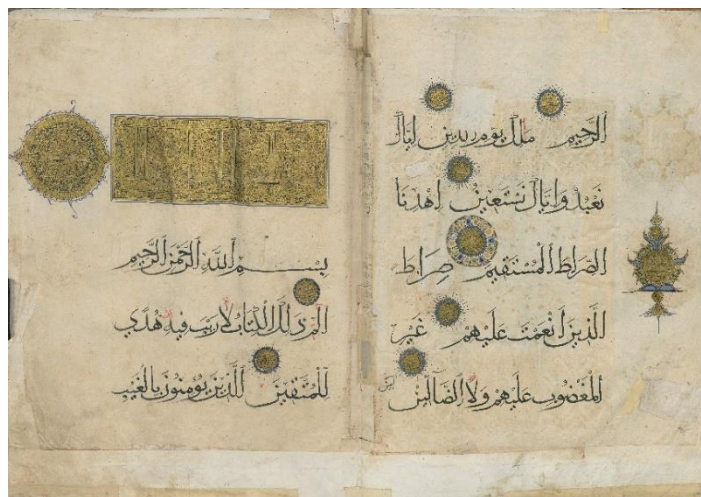 الرَّحِيمِ مَلِكِ يَوْمِ الدِّينِ إِيَّاكَ
نَعْبُدُ وَإِيَّاكَ نَسْتَعِينُ اهْدِنَا
الصِّرَاطَ الْمُسْتَقِيمَ صِرَاطَ
الَّذِينَ أَنْعَمْتَ عَلَيْهِمْ غَيْرِ
الْمَغْضُوبِ عَلَيْهِمْ وَلَا الضَّالِّينَ
بِسْمِ اللَّهِ الرَّحْمَنِ الرَّحِيمِ
الم ذَلِكَ الْكِتَابُ لَا رَيْبَ فِيهِ هُدًى
لِلْمُتَّقِينَ الَّذِينَ يُؤْمِنُونَ بِالْغَيْبِ